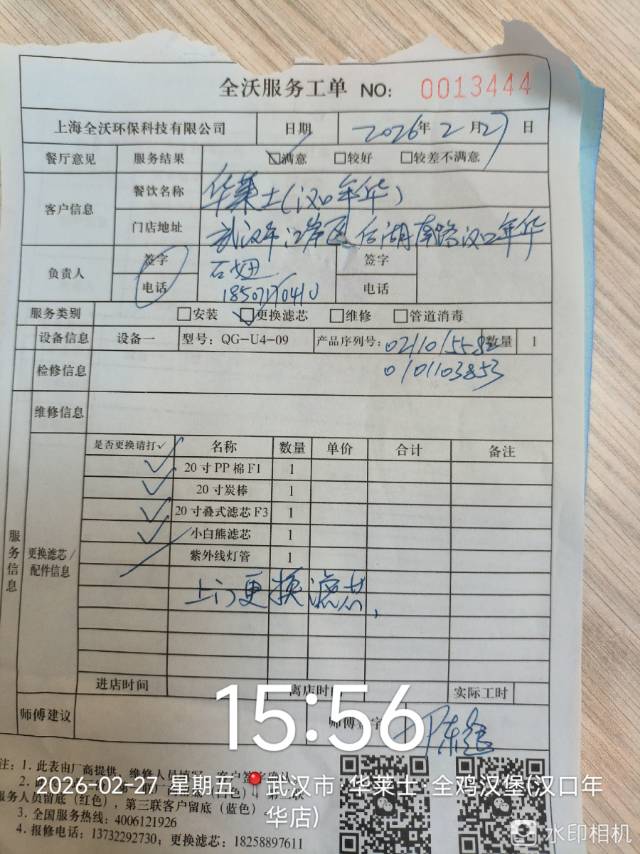 全沃服务工单 NO: 0013444
上海全沃环保科技有限公司 日期 2026年 2 月 27 日
餐厅意见 服务结果 ☑满意 □较好 □较差不满意
客户信息 餐饮名称 华莱士(汉口年华)
门店地址 武汉市江岸区后湖南路汉口年华
负责人 签字 签字
电话 电话
服务类别 □安装 ☑更换滤芯 □维修 □管道消毒
设备信息 设备一 型号: QG-U4-09 产品序列号: 数量 1
0101103853
检修信息
维修信息
服务信息 更换滤芯/配件信息
是否更换请打✓ 名称 数量 单价 合计 备注
✓ 20寸PP棉F1 1
✓ 20寸炭棒 1
✓ 20寸叠式滤芯F3 1
✓ 小白熊滤芯 1
紫外线灯管 1
上门更换滤芯,
进店时间 离店时间 实际工时
师傅建议 师傅签字
15:56
注: 1. 此表由厂商提供, 维修人员填写, 客户签字确认
2026-02-27 星期五 武汉市·华莱士·全鸡汉堡(汉口年华店)
服务人员留底（红色），第三联客户留底（蓝色）
3. 全国服务热线: 4006121926
4. 报修电话: 13732292730; 更换滤芯: 18258897611
水印相机